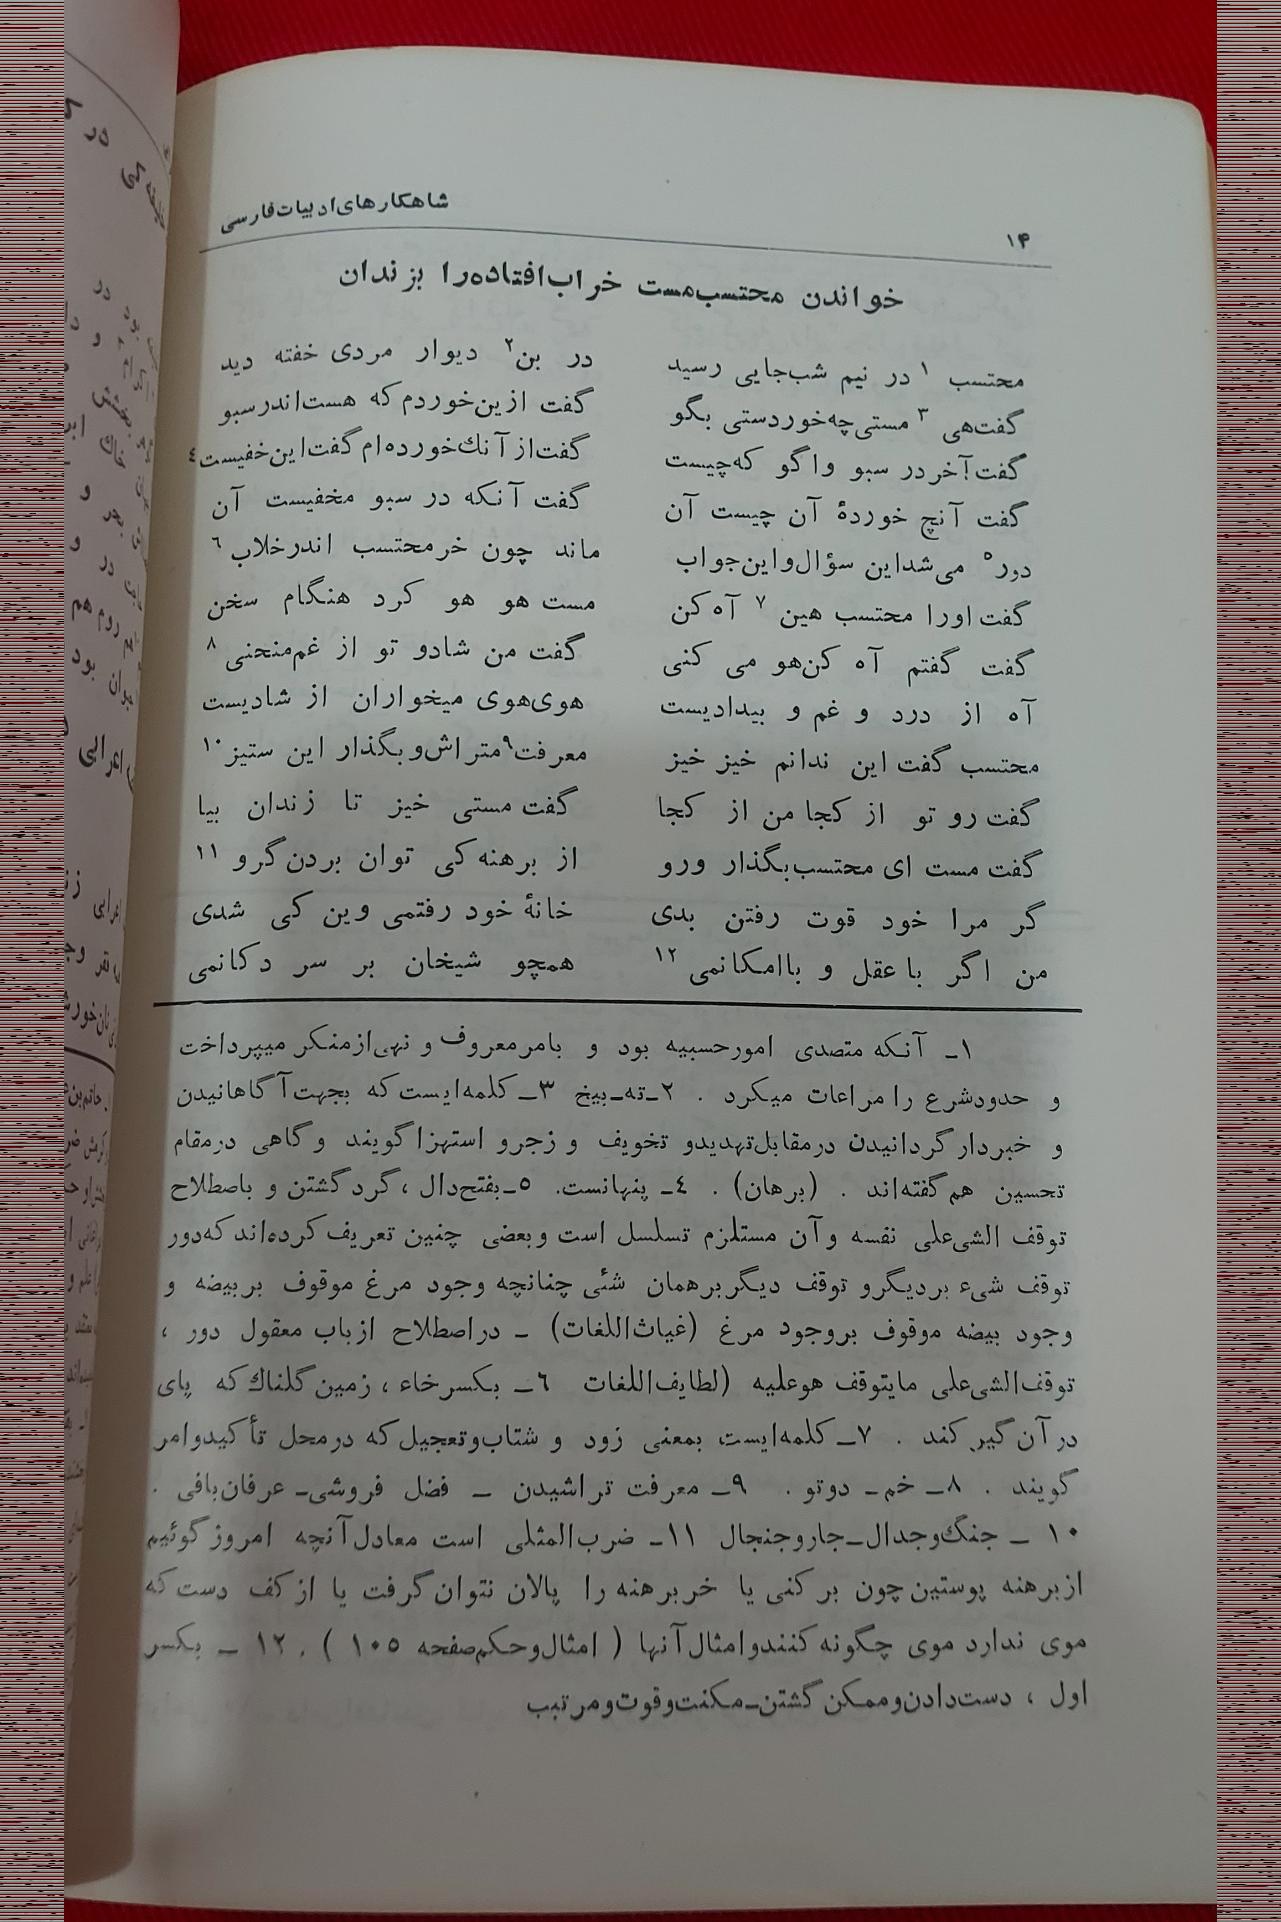 شاهکارهای ادبیات فارسی
۱۴
خواندن محتسب مست خراب افتاده را بزندان
محتسب ۱ در نیم شب جایی رسید در بن۲ دیوار مردی خفته دید
گفت هی ۳ مستی چه خوردستی بگو گفت ازین خوردم که هست اندر سبو
گفت آخر در سبو واگو که چیست گفت از آنك خورده ام گفت این خفیست٤
گفت آنچ خوردهٔ آن چیست آن گفت آنکه در سبو مخفیست آن
دور۵ می شد این سؤال و این جواب ماند چون خر محتسب اندر خلاب٦
گفت او را محتسب هین ۷ آه کن مست هو هو کرد هنگام سخن
گفت گفتم آه کن هو می کنی گفت من شاد و تو از غم منحنی ۸
آه از درد و غم و بیدادیست هوی هوی میخواران از شادیست
محتسب گفت این ندانم خیز خیز معرفت۹ متراش و بگذار این ستیز۱۰
گفت رو تو از کجا من از کجا گفت مستی خیز تا زندان بیا
گفت مست ای محتسب بگذار و رو از برهنه کی توان بردن گرو ۱۱
گر مرا خود قوت رفتن بدی خانهٔ خود رفتمی وین کی شدی
من اگر با عقل و با امکانمی ۱۲ همچو شیخان بر سر دکانمی
۱ـ آنکه متصدی امور حسبیه بود و بامر معروف و نهی از منکر میپرداخت
و حدود شرع را مراعات میکرد . ۲ـ ته ـ بیخ ۳ـ کلمه ایست که بجهت آگاهانیدن
و خبردار گردانیدن در مقابل تهدید و تخویف و زجر و استهزا گویند و گاهی در مقام
تحسین هم گفته اند . (برهان) . ٤ـ پنهانست. ۵ـ بفتح دال ، گرد گشتن و باصطلاح
توقف الشی علی نفسه و آن مستلزم تسلسل است و بعضی چنین تعریف کرده اند که دور
توقف شیء بر دیگر و توقف دیگر بر همان شئی چنانچه وجود مرغ موقوف بر بیضه و
وجود بیضه موقوف بر وجود مرغ (غیاث اللغات) ـ در اصطلاح ارباب معقول دور ،
توقف الشی علی ما یتوقف هو علیه (لطایف اللغات ٦ـ بکسر خاء ، زمین گلناك که پای
در آن گیر کند . ۷ـ کلمه ایست بمعنی زود و شتاب و تعجیل که در محل تأکید و امر
گویند . ۸ـ خم ـ دوتو . ۹ـ معرفت تراشیدن ـ فضل فروشی ـ عرفان بافی .
۱۰ ـ جنگ و جدال ـ جار و جنجال ۱۱ـ ضرب المثلی است معادل آنچه امروز گوئیم
از برهنه پوستین چون بر کنی یا خر برهنه را پالان نتوان گرفت یا از کف دست که
موی ندارد موی چگونه کنند و امثال آنها ( امثال و حکم صفحه ۱۰۵ ) . ۱۲ ـ بکسر
اول ، دست دادن و ممکن گشتن ـ مکنت و قوت و مرتبب